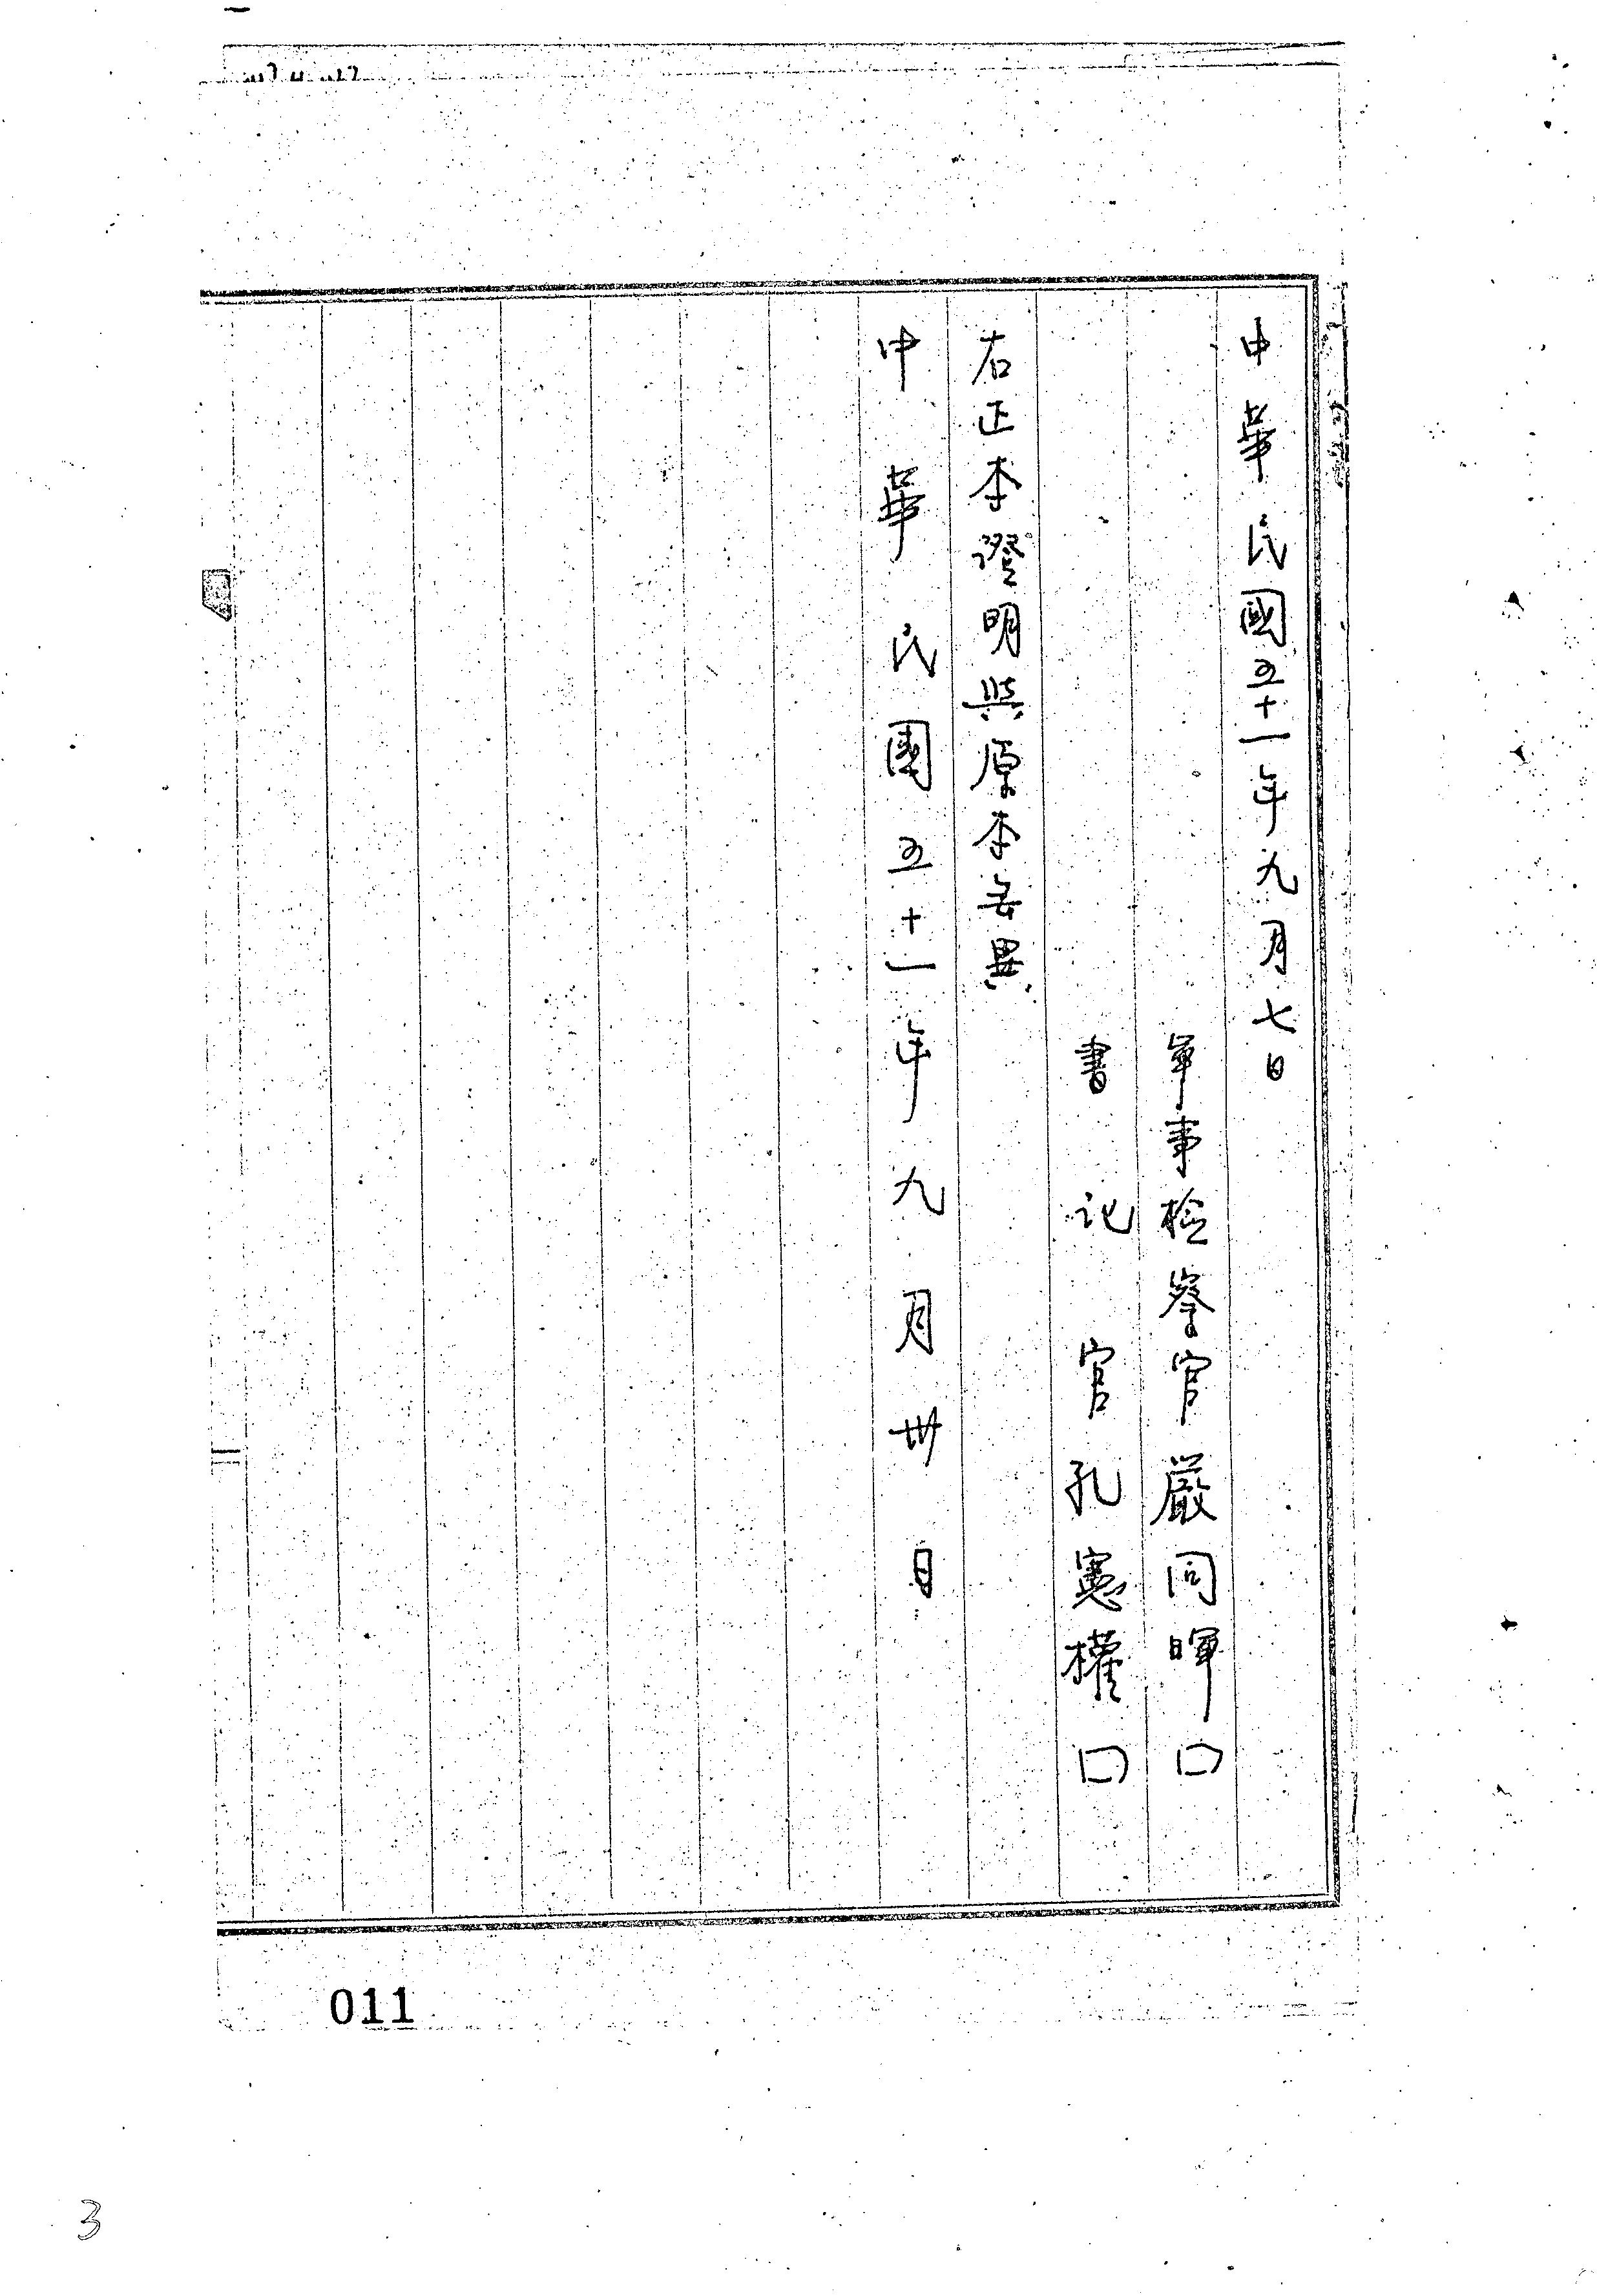 中華民國五十一年九月七日
軍事檢察官嚴同暉口
書記官孔憲權口
右正本證明與原本無異
中華民國五十一年九月卅日
011
3